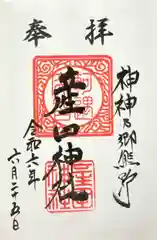 奉拝
神神乃郷熊野
産田神社
令和六年
六月二十五日